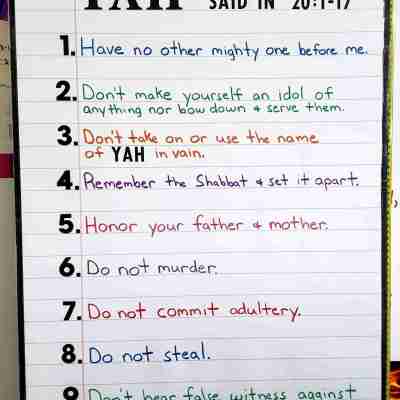 YAH SAID IN 20:1-17
1. Have no other mighty one before me.
2. Don't make yourself an idol of
anything nor bow down & serve them.
3. Don't take on or use the name
of YAH in vain.
4. Remember the Shabbat & set it apart.
5. Honor your father & mother.
6. Do not murder.
7. Do not commit adultery.
8. Do not steal.
9. Don't bear false witness against